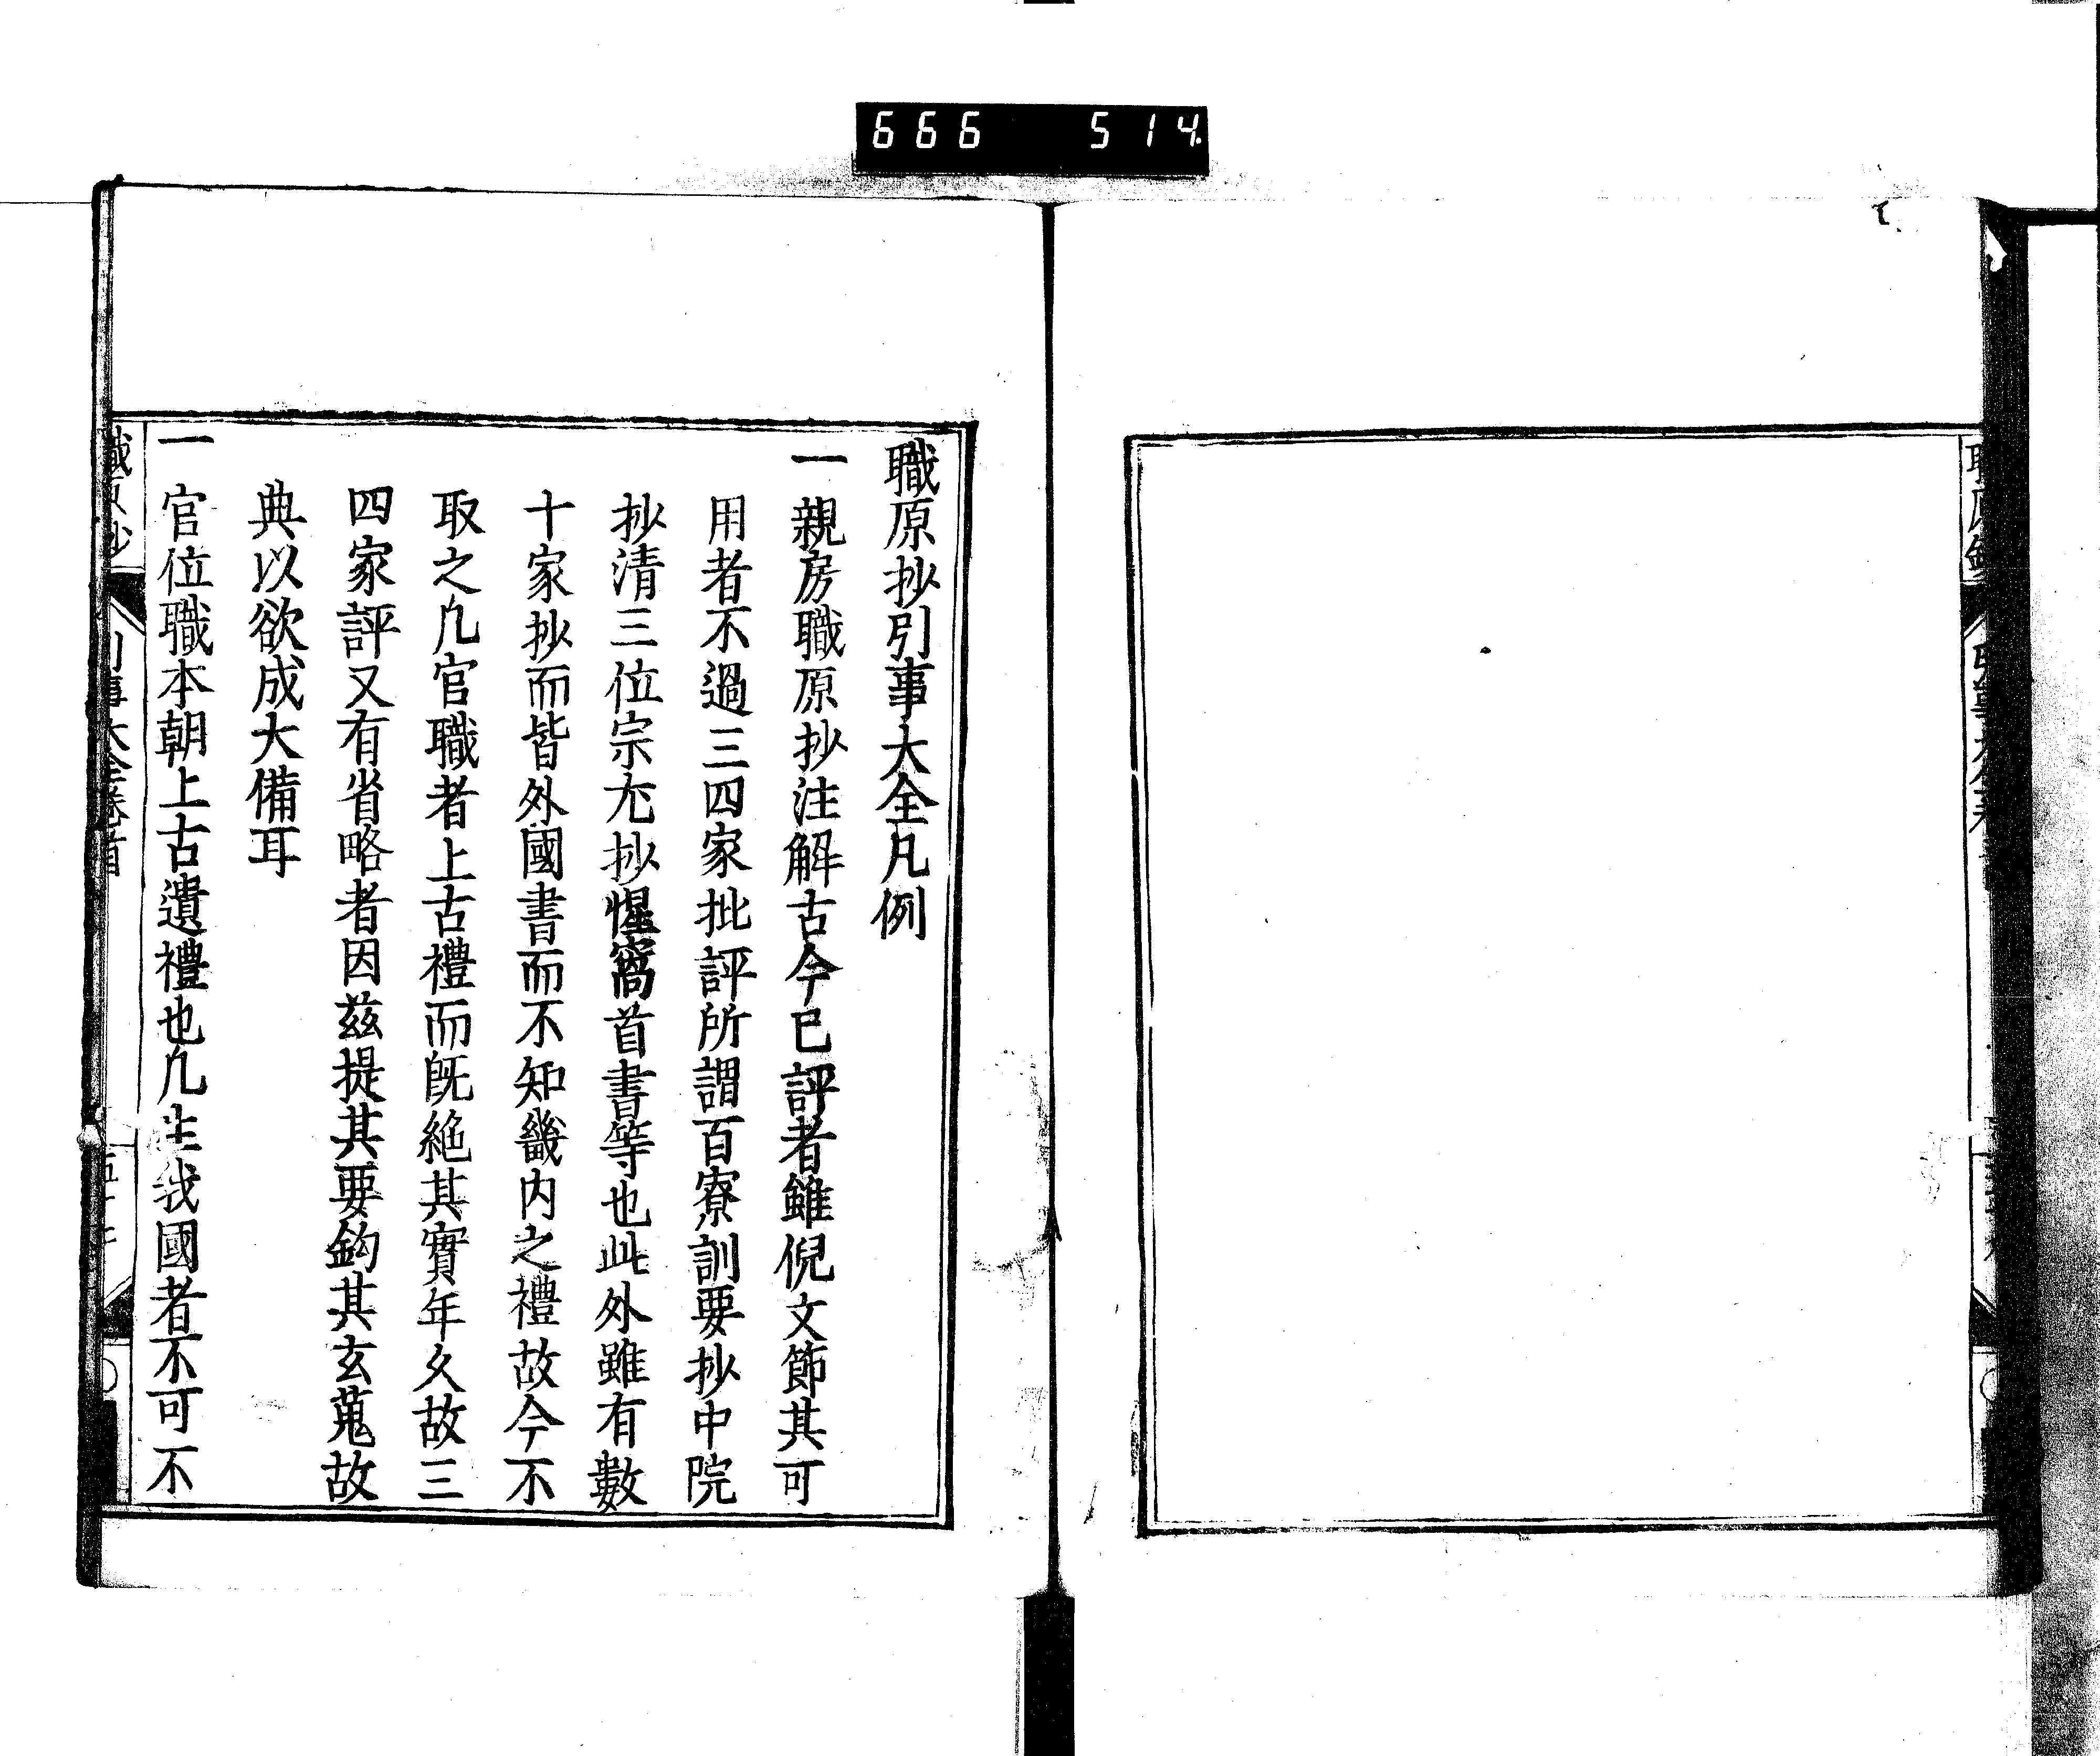 666 514
職原抄引事大全凡例
一親房職原抄注解古今已評者雖倪文節其可
用者不過三四家批評所謂百寮訓要抄中院
抄清三位宗尤抄惺窩首書等也此外雖有數
十家抄而皆外國書而不知畿内之禮故今不
取之凢官職者上古禮而既絶其實年久故三
四家評又有省略者因茲提其要鈎其玄蒐故
典以欲成大備耳
一官位職本朝上古遺禮也凢生我國者不可不